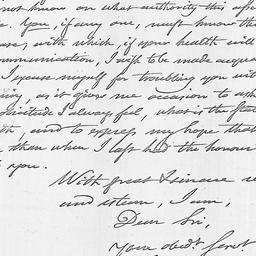 not know on what authority this ap
e. You, if any one, must know the
use, with which, if your health will
mmunication, I wish to be made acqua
I excuse myself for troubling you wit
iry, as it gives me occasion to ask
solicitude I always feel, what is the State
th, and to express my hope that
than when I last had the honour
you.
With great & sincere re
and esteem, I am,
Dear Sir,
Your obedt. Servt.